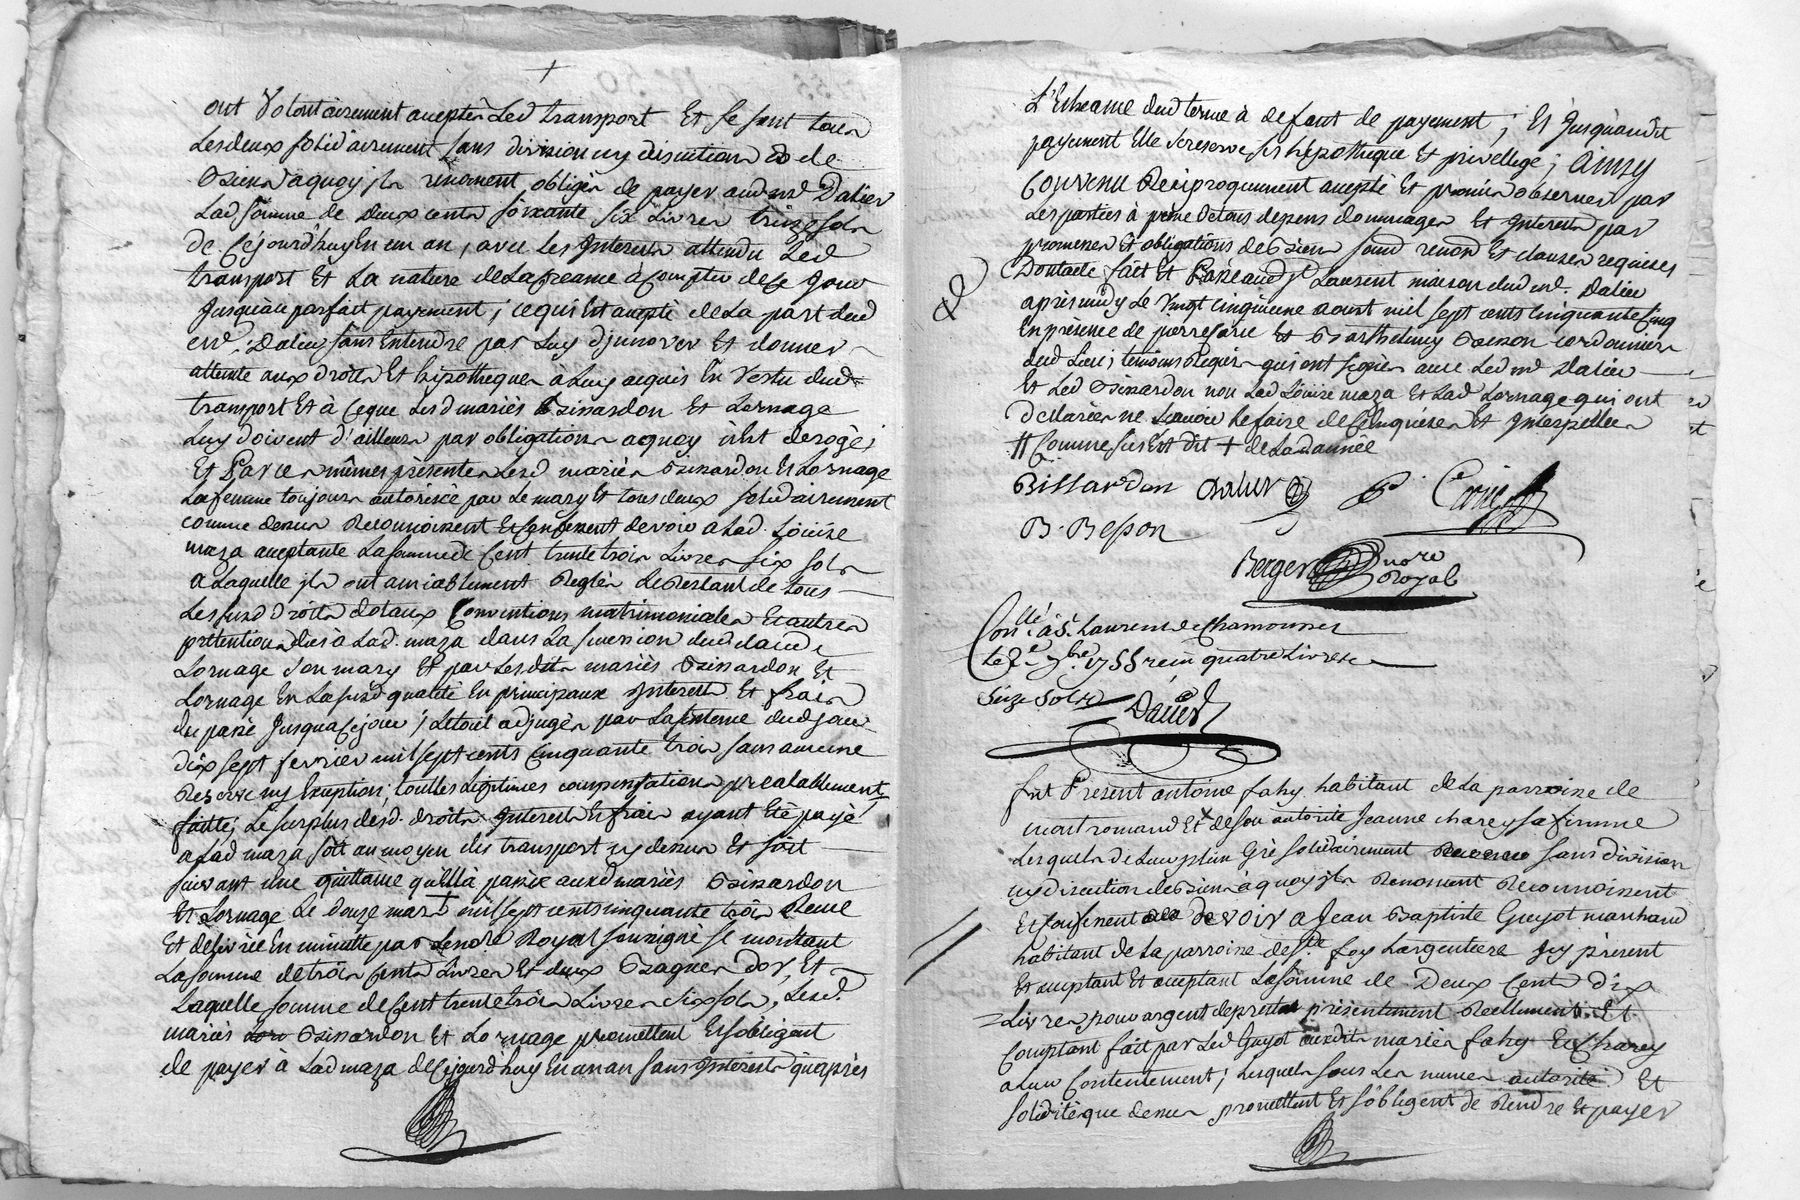 ont Volontairement acceptés Led transport Et se sont tous
Les deux solidairement sans division ny discution de
Biens a quoy ils renoncent obligés de payer aud md Dalier
Lad somme de Deux cents soixante six Livres treize sols
de Cejourd'huy En un an, avec Les Interests attendu Led
transport Et La nature de La Creance à Compter de Ce Jour
Jusqu'au parfait payement; ce qui Est accepté de La part dud
md. Dalier sans Entendre par Luy dJnnover Et donner
atteinte aux droits Et hipotheques à Luy acquis En Vertu dud
transport Et à Ceque Lesd mariés Bissardon Et Lornage
Luy doivent d'ailleurs par obligations aquoy il n'Est derogé;
Et Par ces mêmes présentes Lesd mariés Bissardon Et Lornage
La femme toujours autorisée par Le mary Et tous deux solidairement
comme dessus Reconnoissent Et Confessent devoir a Lad. Loüise
maza acceptante La somme de Cent trente trois Livres six sols
a Laquelle ils ont amiablement Reglés Le Restant de tous
Les susd Droits dotaux Conventions matrimoniales Et autres
prétentions dues a Lad. maza dans La succession dud claude
Lornage son mary Et par Lesdits mariés Bissardon Et
Lornage En La susd qualité En principaux Interests Et frais
du passé Jusqua Cejour; Letout adjugés par La sentence dud jour
dix sept fevrier mil sept cents Cinquante trois sans aucune
Reserve ny Exception; touttes Légitimes compensations prealablement
faitte; Le surplus desd. droits Interests Et frais ayant Eté payé
a Lad maza soit au moyen des transport cy dessus Et soit
suivant une quittance qu'Ellà passée auxd mariés Bissardon
Et Lornage Le douze mars mil sept cents cinquante trois Receue
Et delivrée En minutte par Lenore Royal soussigné se montant
La somme de trois Cents Livres Et deux Bagues dor, Et
Laquelle somme de Cent trente trois Livres six sols, Lesd.
mariés Bissardon Et Lornage promettent Et s'obligent
de payer à Lad maza de Cejourd'huy En un an sans Interests qu'après
L'Echeance dud terme à defaut de payement; Et Jusqu'audit
payement Elle se reserve ses hipotheque Et privillege; Ainsy
Convenu Reciproquement accepté Et promis observer par
Les parties à peine de tous depens dommages Et Interests par
promesses Et obligations de Biens soumd renond Et clauses requises
Dont acte fait Et Passé aud St Laurent maison dud md. Dalier
après midy Le Vingt Cinquieme aoust mil sept cents Cinquante Cinq
En présence de pierre Carie Et Barthelemy Besson cordonniers
dud Lieu; temoins Requis qui ont signés avec Led md Dalier
Et Led Bissardon non Lad Loüise maza Et Lad Lornage qui ont
Declarées ne Sçavoir Le faire de Ce Enquises Et Interpellées
# Comme sus Est dit + de La dannée
Bissardon Dalier Carie
B. Besson
Berger nore
Royal
Conllé à St. Laurens de Chamousset
Le 7e 7bre 1755 reçu quatre Livres
Seize Sols
Dalier
fut Présent antoine fahy habitant de La parroisse de
montromand Et de son autorité Jeanne charey sa femme
Lesquels de Leur plein Gré solidairement sans division
ny discution de Biens à quoy ils Renoncent Reconnoissent
Et Confessent devoir a Jean Baptiste Guyot marchand
habitant de La parroisse de Ste. foy Largentiere Jcy présent
Et acceptant La somme de Deux Cents dix
Livres pour argent de prest présentement Reellement Et
Comptant fait par Led Guyot auxdits mariés fahy Et Charey
a Leur Contentement; Lesquels sous Les mêmes autorité Et
solidité que dessus promettent Et s'obligent de Rendre Et payer